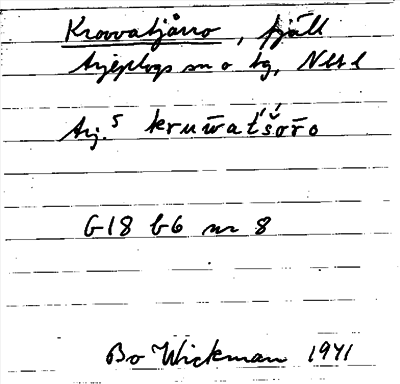 Krovvatjåro, fjäll
Arjeplogs sn o tg, Nbt l
Arj.⁵ kruw̄at́š́ōr̄o
G18 b6 nr 8
Bo Wickman 1941